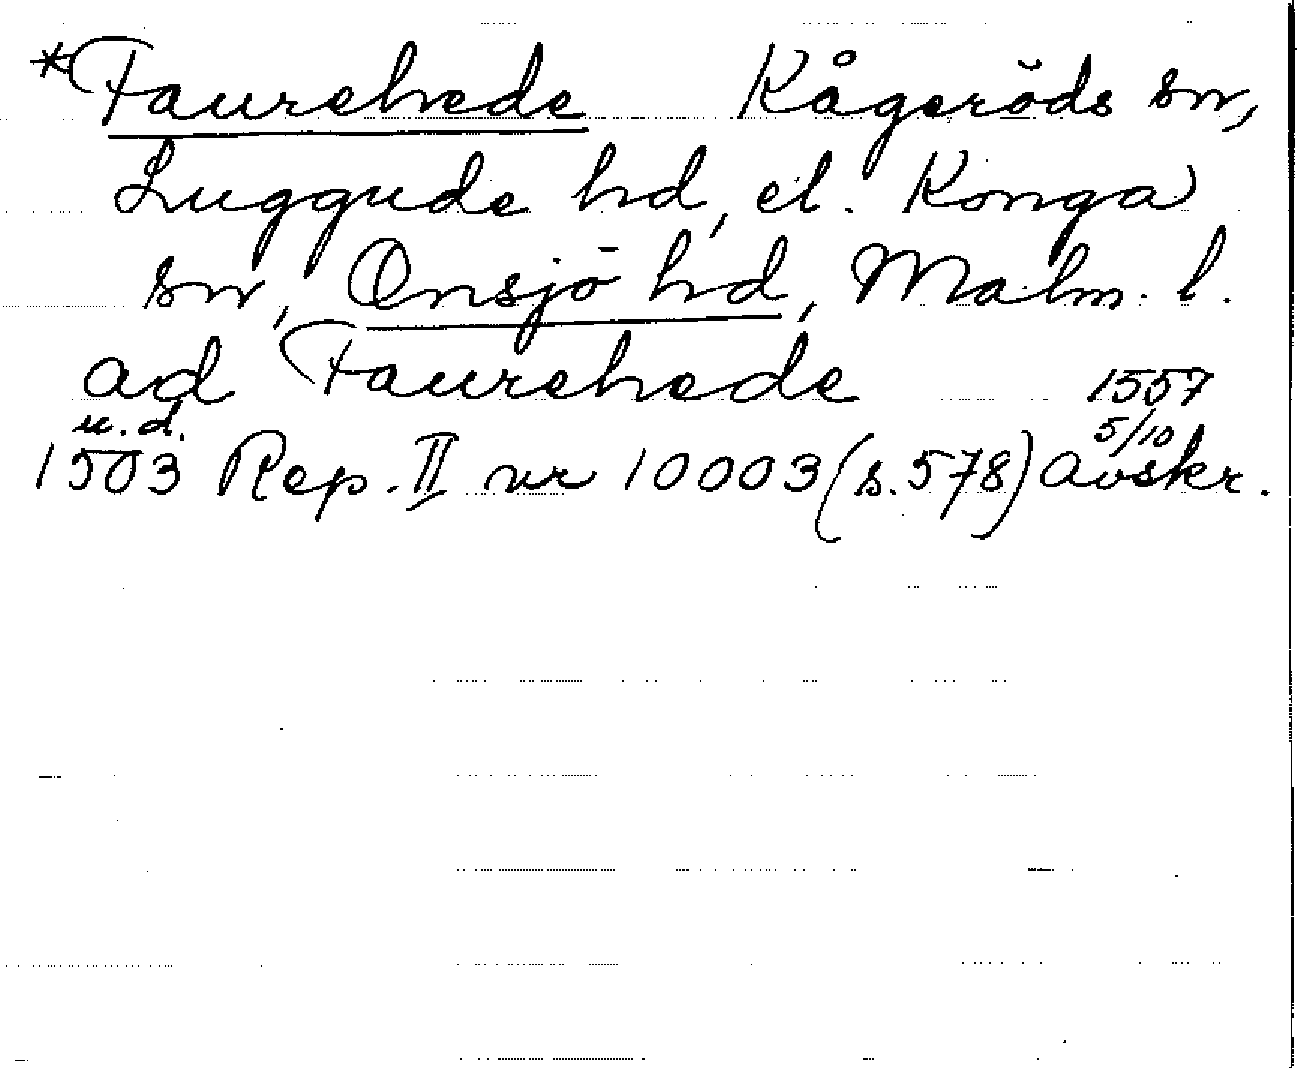 *Faurehede Kågeröds sn,
Luggude hd, el. Konga
sn, Onsjö hd, Malm. l.
ad Faurehede 1557
u.d. 5/10
1503 Rep. II nr 10003 (s. 578) Avskr.